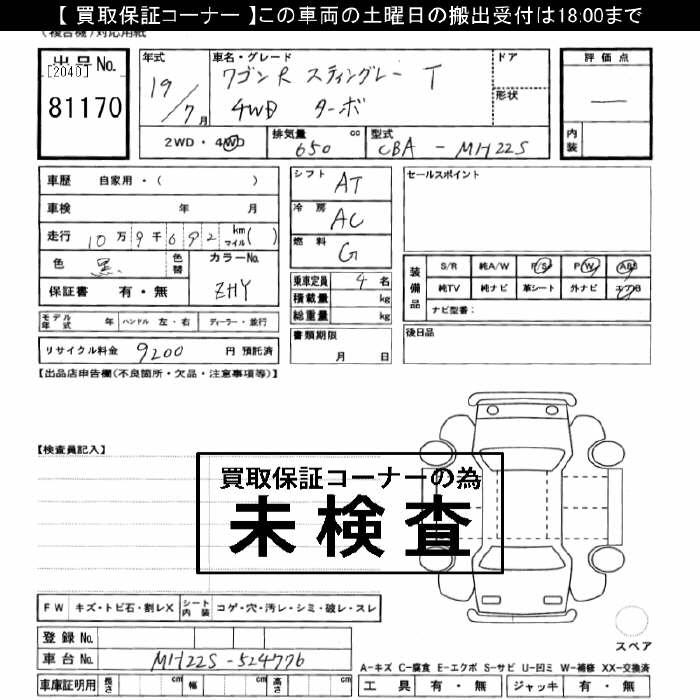 【 買取保証コーナー 】この車両の土曜日の搬出受付は18:00まで
(複合機)対応用紙
出品No.
[2040]
81170
年式
19/7月
車名・グレード
ワゴンR スティングレー T
4WD ターボ
ドア
形状
評価点
—
内装
2WD・4WD
排気量
650
cc
型式
CBA - MH22S
車歴 自家用・( )
車検 年 月
走行 10万9千692 km マイル( )
色 黒
色替
カラーNo.
ZHY
保証書 有・無
シフト AT
冷房 AC
燃料 G
乗車定員 4 名
積載量 kg
総重量 kg
セールスポイント
装備品
S/R 純A/W P/S P/W ABS
純TV 純ナビ 革シート 外ナビ エアB
ナビ型番:
モデル年式 年 ハンドル 左・右 ディーラー・並行
書類期限
月 日
後日品
リサイクル料金 9200 円 預託済
【出品店申告欄(不良箇所・欠品・注意事項等)】
【検査員記入】
買取保証コーナーの為
未検査
FW キズ・トビ石・割レX
シート内装 コゲ・穴・汚レ・シミ・破レ・スレ
登録No.
車台No. MH22S-524776
スペア
A-キズ C-腐食 E-エクボ S-サビ U-凹ミ W-補修 XX-交換済
車庫証明用 長さ cm 幅 cm 高さ cm
工具 有・無 ジャッキ 有・無